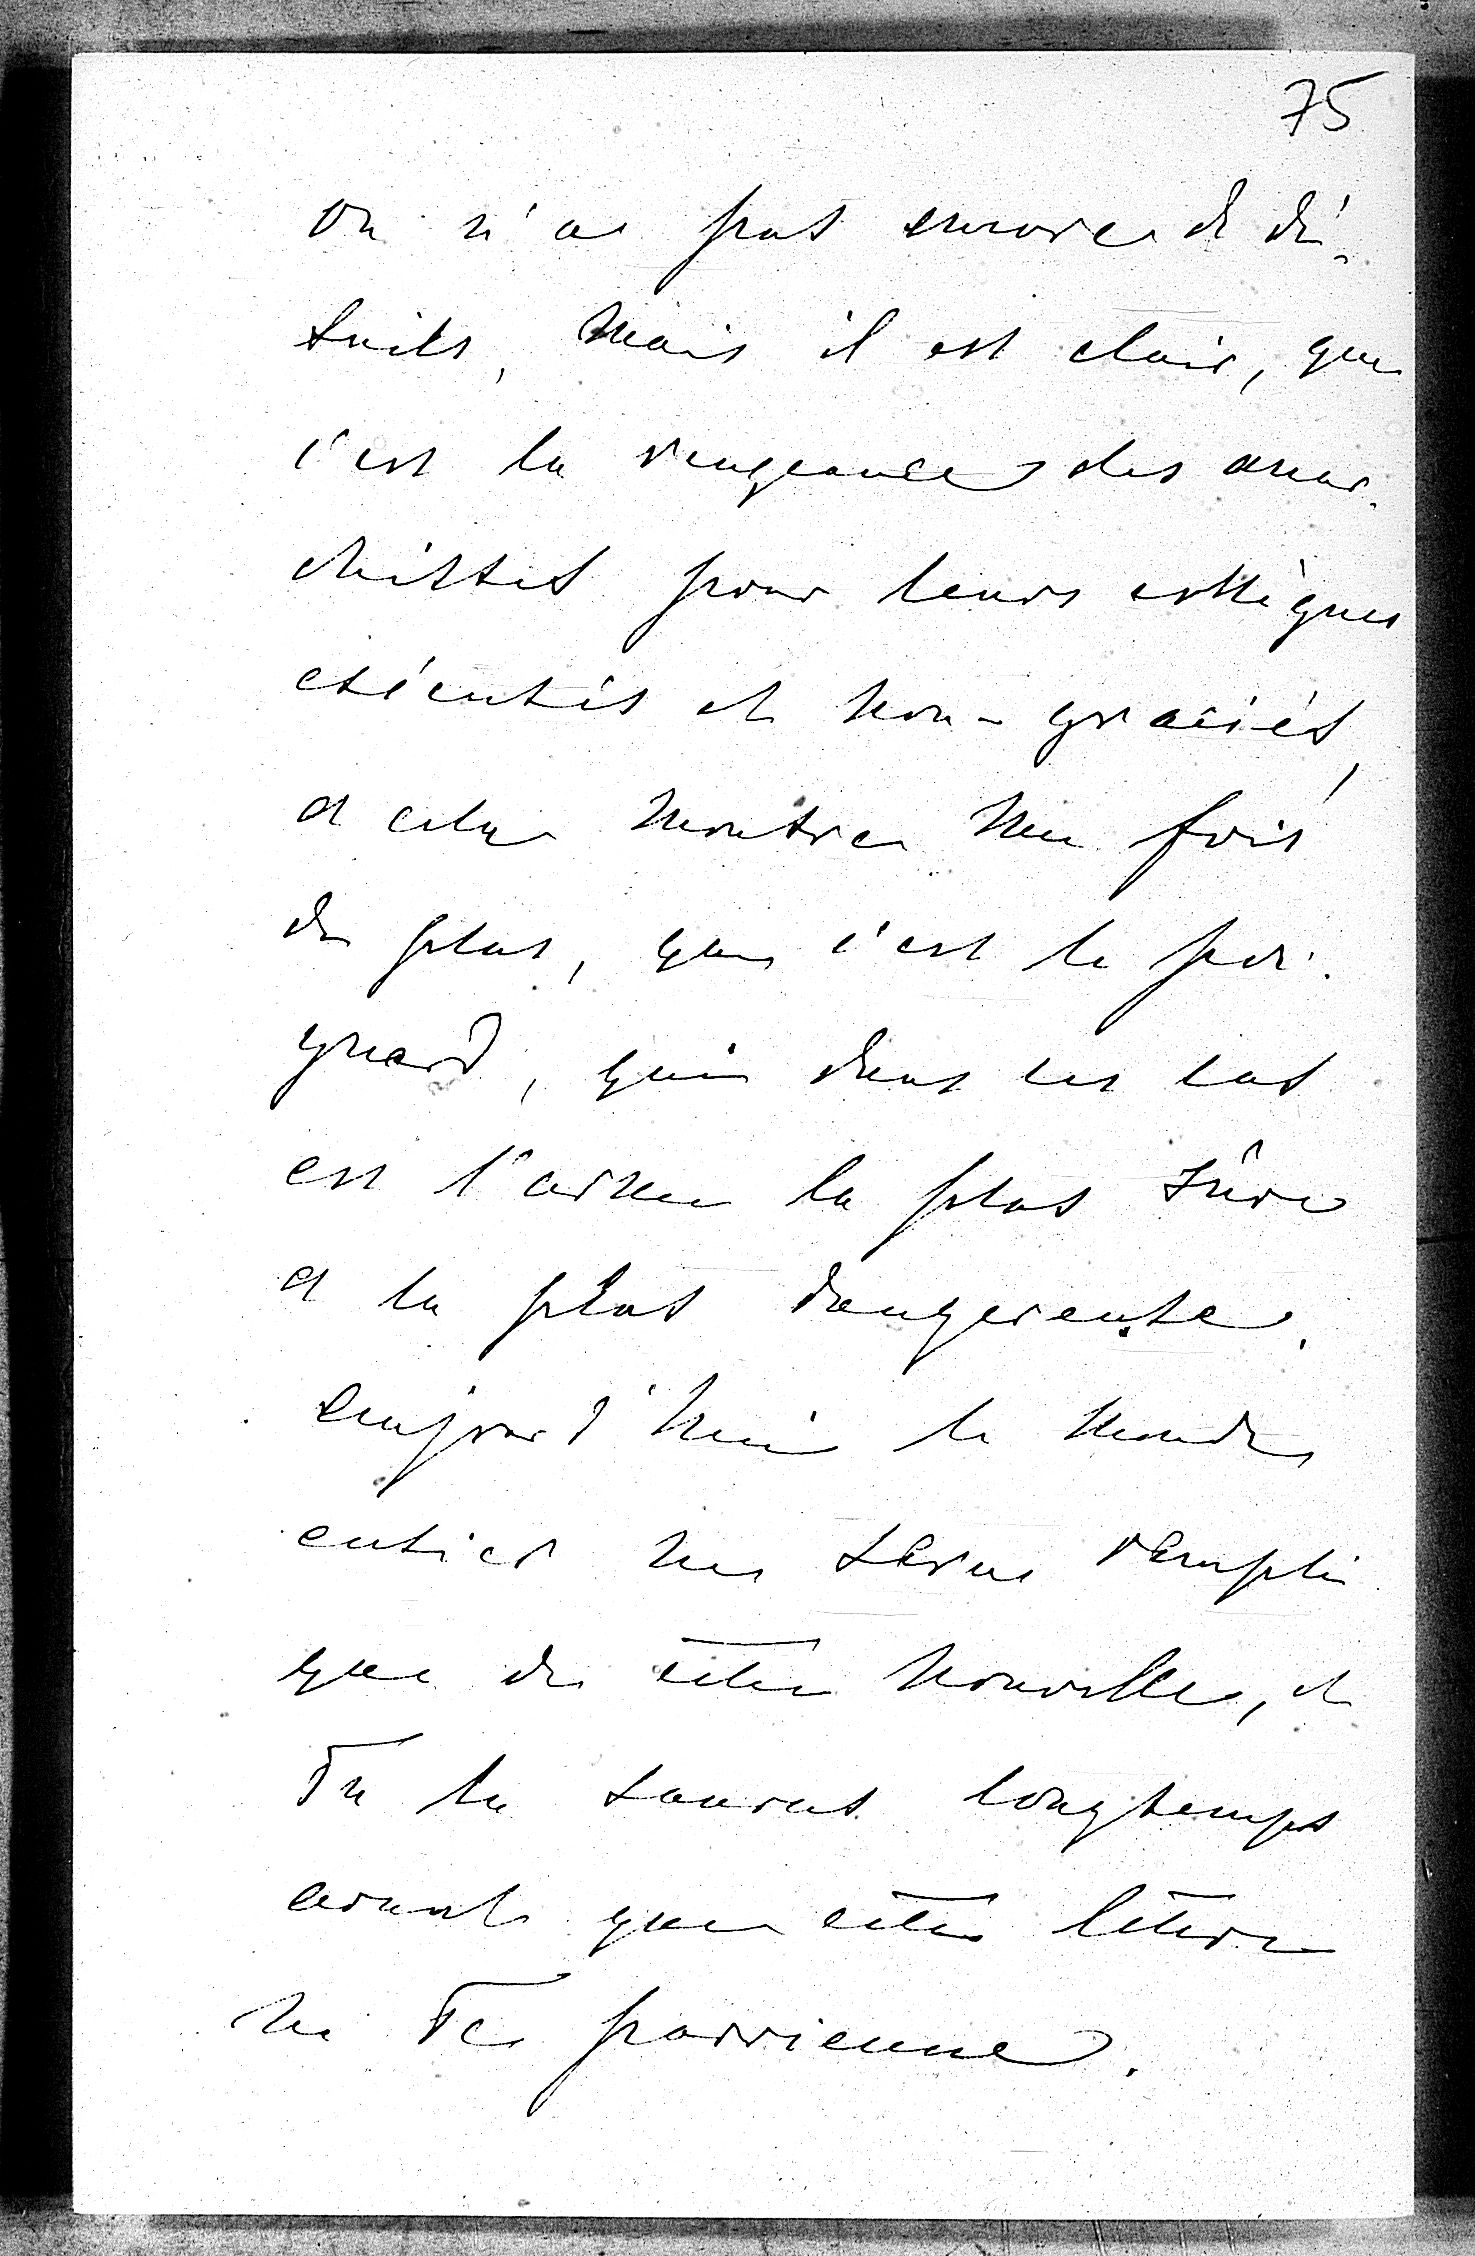 75
on n'a pas encore de dé-
tails, mais il est clair, que
c'est la vengeance des anar-
chistes pour leurs collègues
exécutés et non-graciés,
et cela montre une fois
de plus, que c'est le poi-
gnard, qui dans ces cas
est l'arme la plus sûre
et la plus dangereuse.
aujourd'hui le monde
entier ne sera rempli
que de cette nouvelle, et
Tu la sauras longtemps
avant que cette lettre
ne Te parvienne.